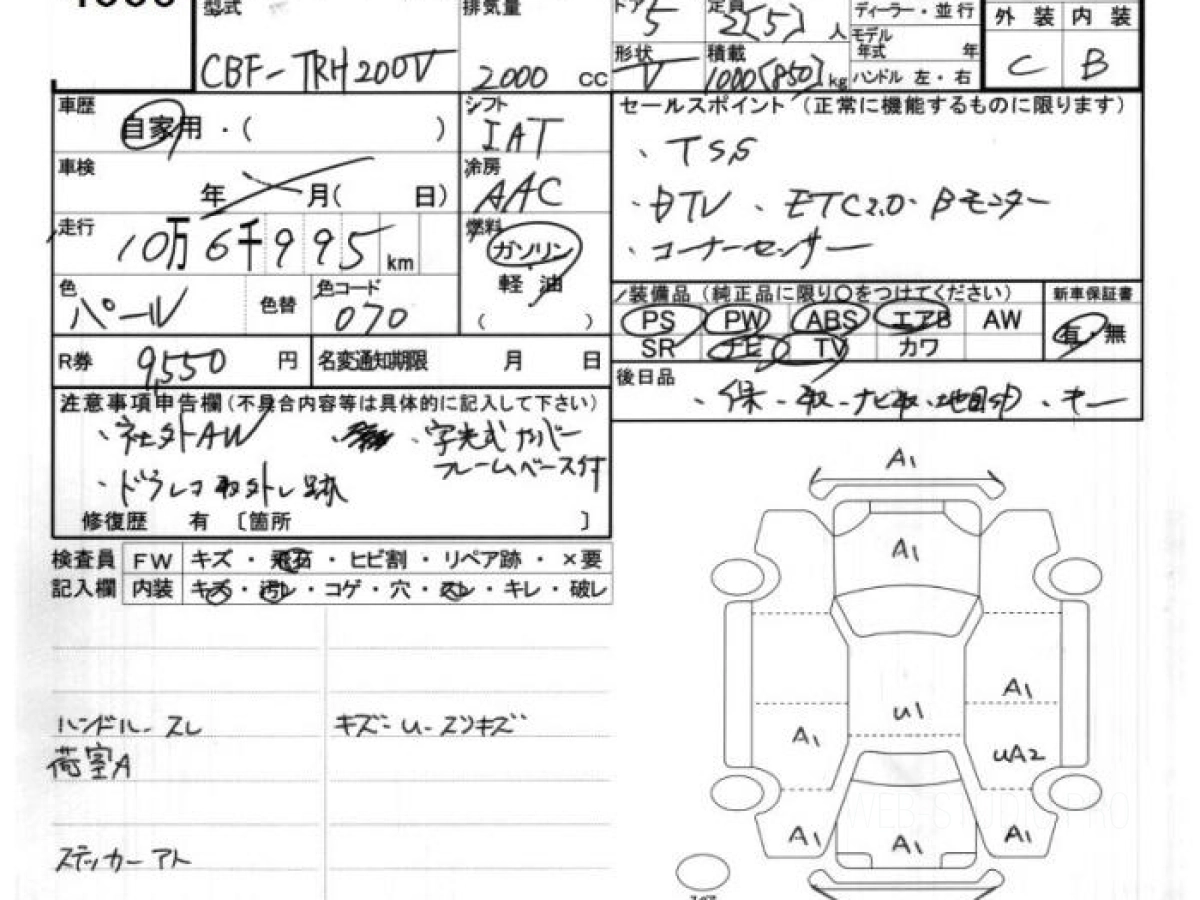 型式 排気量 ドア 5 定員 2(5) 人 ディーラー・並行 外装 内装
CBF-TRH200V 2000 cc 形状 V 積載 1000(850) kg モデル年式 年 ハンドル 左・右 C B
車歴 自家用・( )
シフト IAT
車検 年 月( 日)
冷房 AAC
走行 10万6千995 km
燃料 ガソリン
軽・油
( )
色 パール 色替 色コード 070
R券 9,550 円 名変通知期限 月 日
セールスポイント (正常に機能するものに限ります)
、TSS
・DTV 、ETC2.0・Bモニター
・コーナーセンサー
装備品 (純正品に限り○をつけてください) 新車保証書
PS PW ABS エアB AW 有・無
SR ナビ TV カワ
後日品 ・保・取・ナビ取・キー
注意事項申告欄(不具合内容等は具体的に記入して下さい)
・社外AW ・字光式ナンバー
フレームベース付
・ドラレコ取外し跡
修復歴 有 〔箇所 〕
検査員 FW キズ・飛石・ヒビ割・リペア跡・×要
記入欄 内装 キズ・汚レ・コゲ・穴・スレ・キレ・破レ
ハンドル-スレ キズ-U-スリキズ
荷室A
ステッカーアト
A1
A1
A1
U1
A1 UA2
A1 A1 A1
WEB-STUDIO PRO